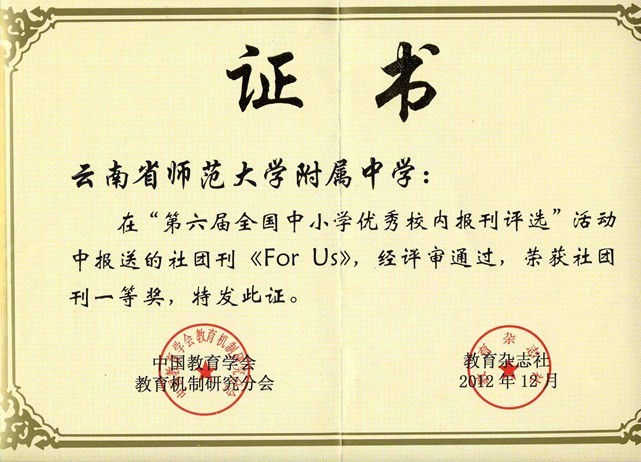 证 书
云南省师范大学附属中学：
在“第六届全国中小学优秀校内报刊评选”活动
中报送的社团刊《For Us》，经评审通过，荣获社团
刊一等奖，特发此证。
中国教育学会
教育机制研究分会
中国教育学会教育机制研究分会
教育杂志社
2012年12月
教育杂志社